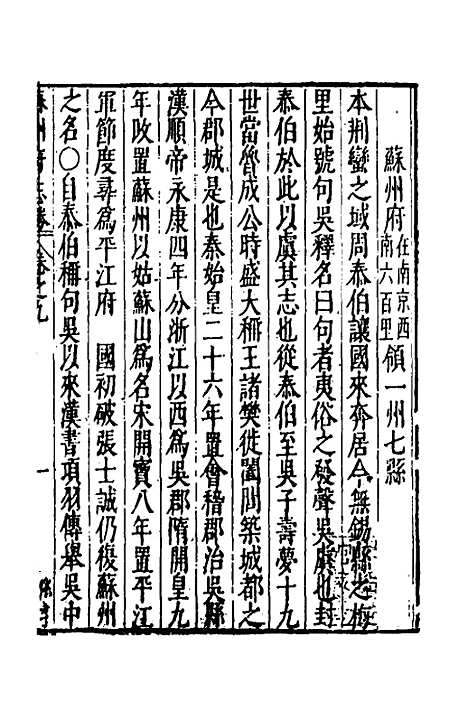 蘇州府在南京西南六百里領一州七縣
本荆蠻之域周泰伯讓國來奔居今無錫縣之梅
里始號句吳釋名曰句者夷俗之發聲吳虞也封
泰伯於此以虞其志也從泰伯至吳子壽夢十九
世當魯成公時盛大稱王諸樊徙闔閭築城都之
今郡城是也秦始皇二十六年置會稽郡治吳縣
漢順帝永康四年分浙江以西爲吳郡隋開皇九
年改置蘇州以姑蘇山爲名宋開寶八年置平江
軍節度尋爲平江府　國初破張士誠仍復蘇州
之名〇自泰伯稱句吳以來漢書項羽傳舉吳中
一